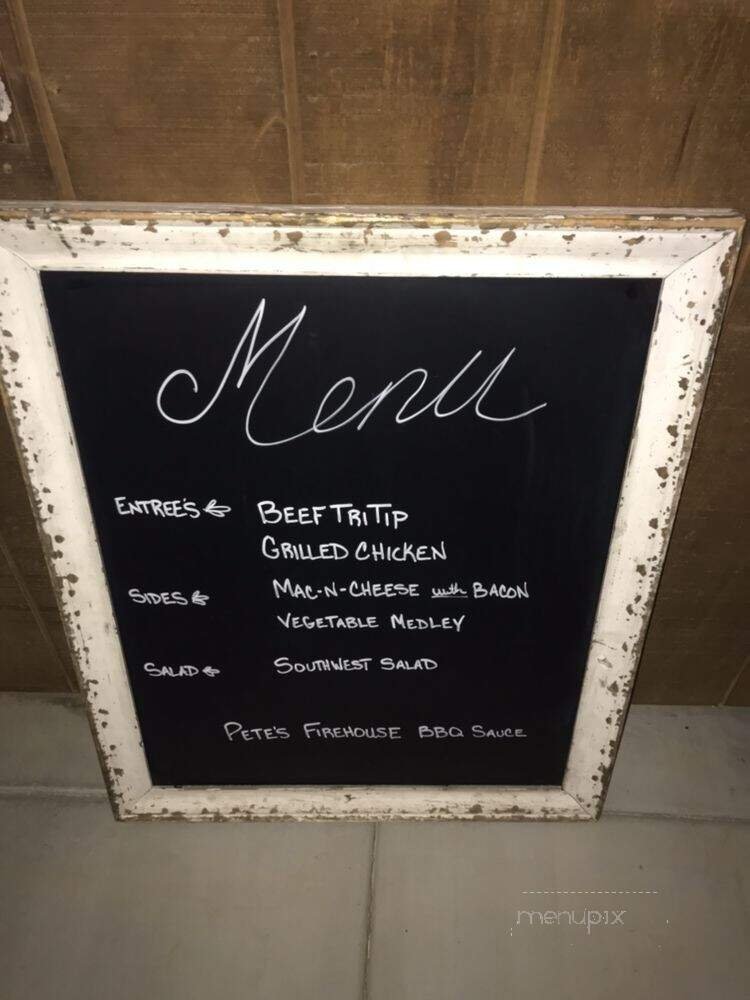 Menu
ENTREE'S BEEF TRI TIP
GRILLED CHICKEN
SIDES MAC-N-CHEESE with BACON
VEGETABLE MEDLEY
SALAD SOUTHWEST SALAD
PETE'S FIREHOUSE BBQ SAUCE
menupix